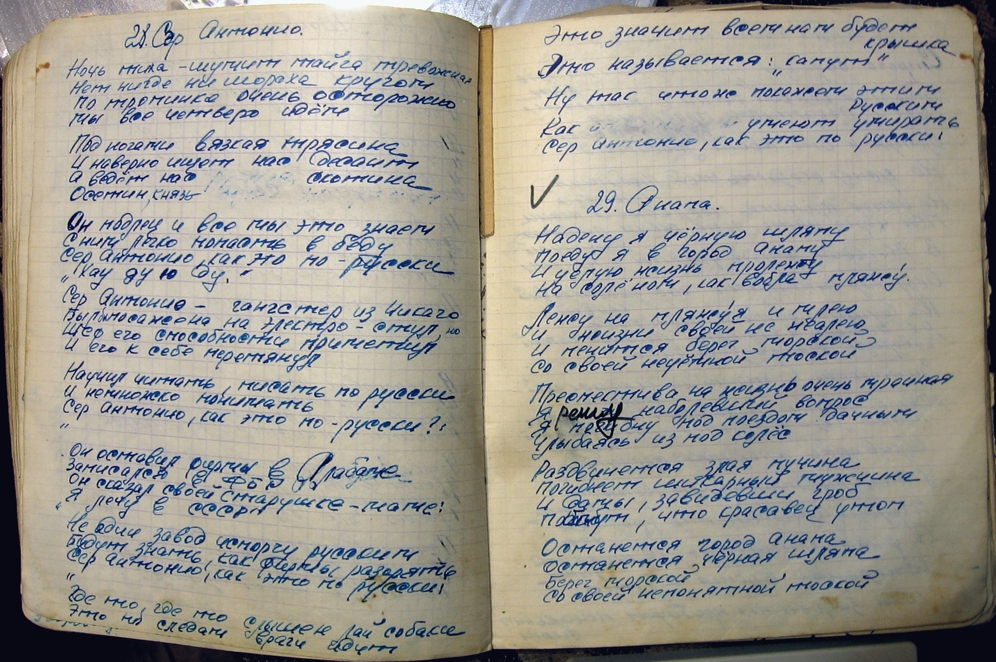 28. Сер Антонио.
Ночь тиха - шумит тайга тревожная
Нет нигде ни шороха кругом
По тропинке очень осторожно
мы все четверо идём
Под ногами вязкая трясина
И наверно ищут нас
а ведёт нас скотина
Осетин, князь
Он мудрец и все мы это знаем
С ним легко попасть в беду
Сер Антонио, как это по-русски
"Хау ду ю ду."
Сер Антонио - гангстер из Чикаго
на электро-стул, но
Шеф его способности приметил
И его к себе перетянул
Научил читать, писать по русски
И немножко понимать
Сер Антонио, как это по-русски?!
"
Он оставил фирмы в Алабаме
Записался в ФБР
Он сказал своей старушке-маме:
"Я лечу в СССР"
Не один завод испорчу русским
Будут знать, как фирмы разорять
Сер Антонио, как это по русски!
"
Где то, где то слышен лай собаки
Это по следам враги идут
Это значит всем нам будет
крышка
Это называется: "капут"
Ну так что же покажем этим
Русским
Как умеют умирать
Сер Антонио, как это по русски!
29. Анапа.
Надену я чёрную шляпу
поеду я в город Анапу
И целую жизнь пролежу
На солёном, как вобла пляжу.
Лежу на пляжу я и млею
И о жизни своей не жалею
И пенится берег морской
Со своей неуёмной тоской
Преспектива на жизнь очень мрачная
Я решу наболевший вопрос
Я погибну под поездом дачным
Улыбаясь из под колёс
Раздвинется злая пучина
Погибнет шикарный мужчина
И дамы, завидевши гроб
, что красавец утоп
Останется город Анапа
Останется чёрная шляпа
Берег морской
Со своей непонятной тоской